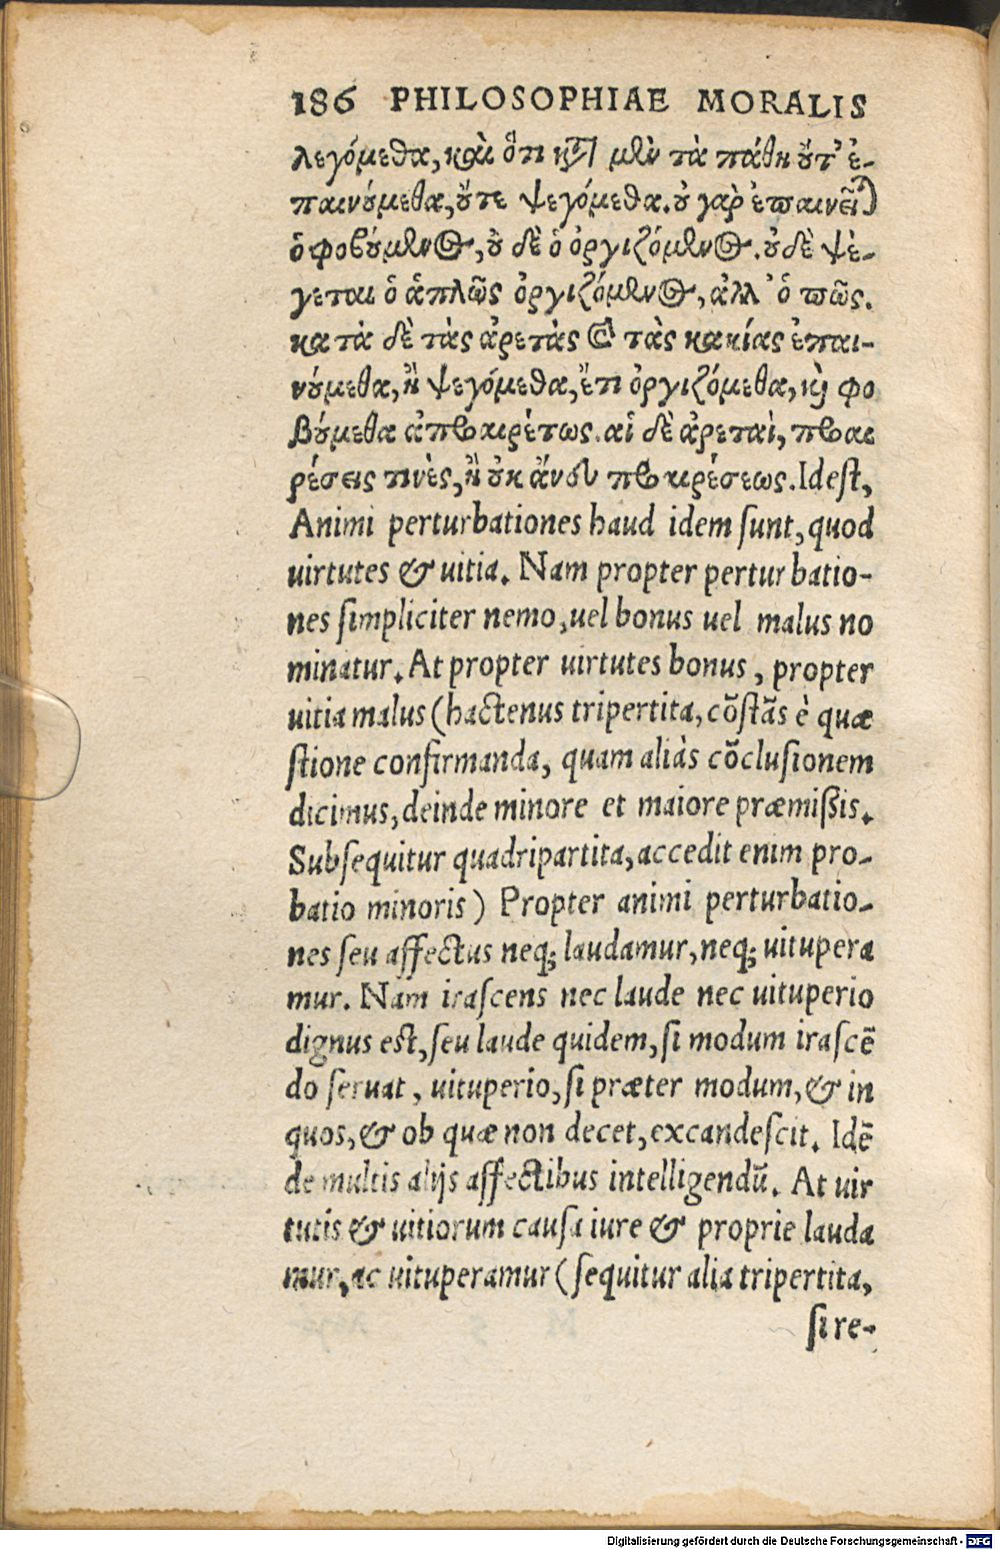 186 PHILOSOPHIAE MORALIS
λεγόμεθα, καὶ ὅτι κτ̀ μὲν τὰ πάθη ὔτ' ἐ-
παινύμεθα, ὔτε ψεγόμεθα. ὐ γαρ̀ ἐπαινεῖ)
ὁ φοβύμενος, ὐ δὲ ὁ ὀργιζόμενος. ὐδὲ ψέ-
γεται ὁ ἁπλῶς ὀργιζόμενος, ἀλλ' ὁ πῶς.
κατὰ δὲ τὰς ἀρετὰς & τὰς κακίας ἐπαι-
νύμεθα, ἢ ψεγόμεθα, ἔτι ὀργιζόμεθα, κὶ φο
βύμεθα ἀπροαιρέτως. αἱ δὲ ἀρεταὶ, προαι
ρέσεις τινὲς, ἢ ὐκ ἄνευ προαιρέσεως. Idest,
Animi perturbationes haud idem ſunt, quod
uirtutes & uitia. Nam propter perturbatio-
nes ſimpliciter nemo, uel bonus uel malus no
minatur. At propter uirtutes bonus, propter
uitia malus (hactenus tripertita, cõſtãs è quæ
ſtione confirmanda, quam aliàs cõcluſionem
dicimus, deinde minore et maiore præmiſsis.
Subſequitur quadripartita, accedit enim pro-
batio minoris) Propter animi perturbatio-
nes ſeu affectus neq; laudamur, neq; uitupera
mur. Nam iraſcens nec laude nec uituperio
dignus eſt, ſeu laude quidem, ſi modum iraſcẽ
do ſeruat, uituperio, ſi præter modum, & in
quos, & ob quæ non decet, excandeſcit. Idẽ
de multis alijs affectibus intelligendũ. At uir
tutis & uitiorum cauſa iure & proprie lauda
mur, ac uituperamur (ſequitur alia tripertita,
ſi re-
Digitalisierung gefördert durch die Deutsche Forschungsgemeinschaft - DFG